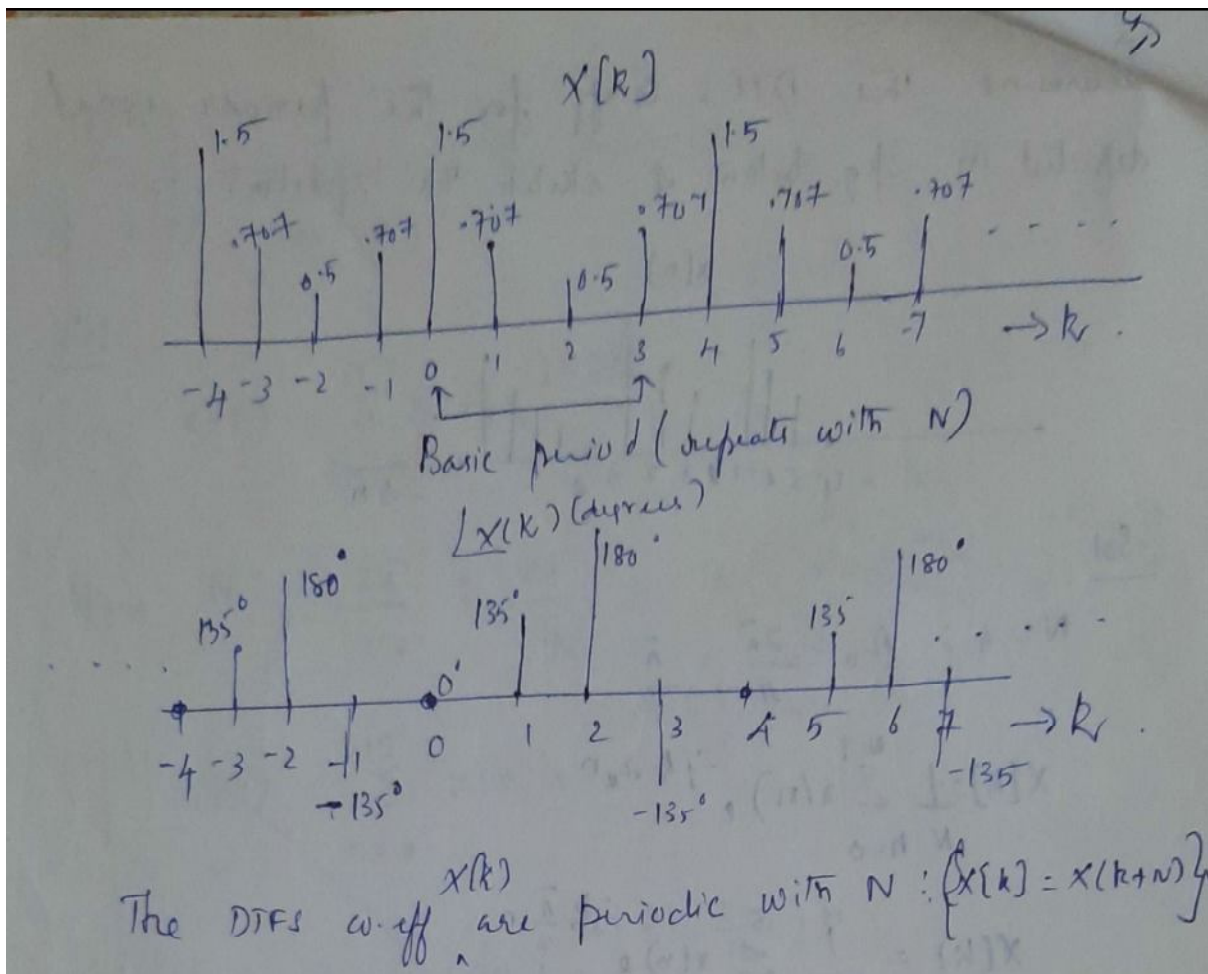 X[k]
1.5 .707 0.5 .707 1.5 .707 0.5 .707 1.5 .707 0.5 .707 . . . .
-4 -3 -2 -1 0 1 2 3 4 5 6 7 → k .
Basic period (repeats with N)
∠X(k) (degrees)
. . . . 135° 180° -135° 0° 135° 180° -135° 135 180° -135 . . . . .
-4 -3 -2 -1 0 1 2 3 4 5 6 7 → k .
X(k)
The DTFS co.eff ^ are periodic with N : {X[k] = X(k+N)}